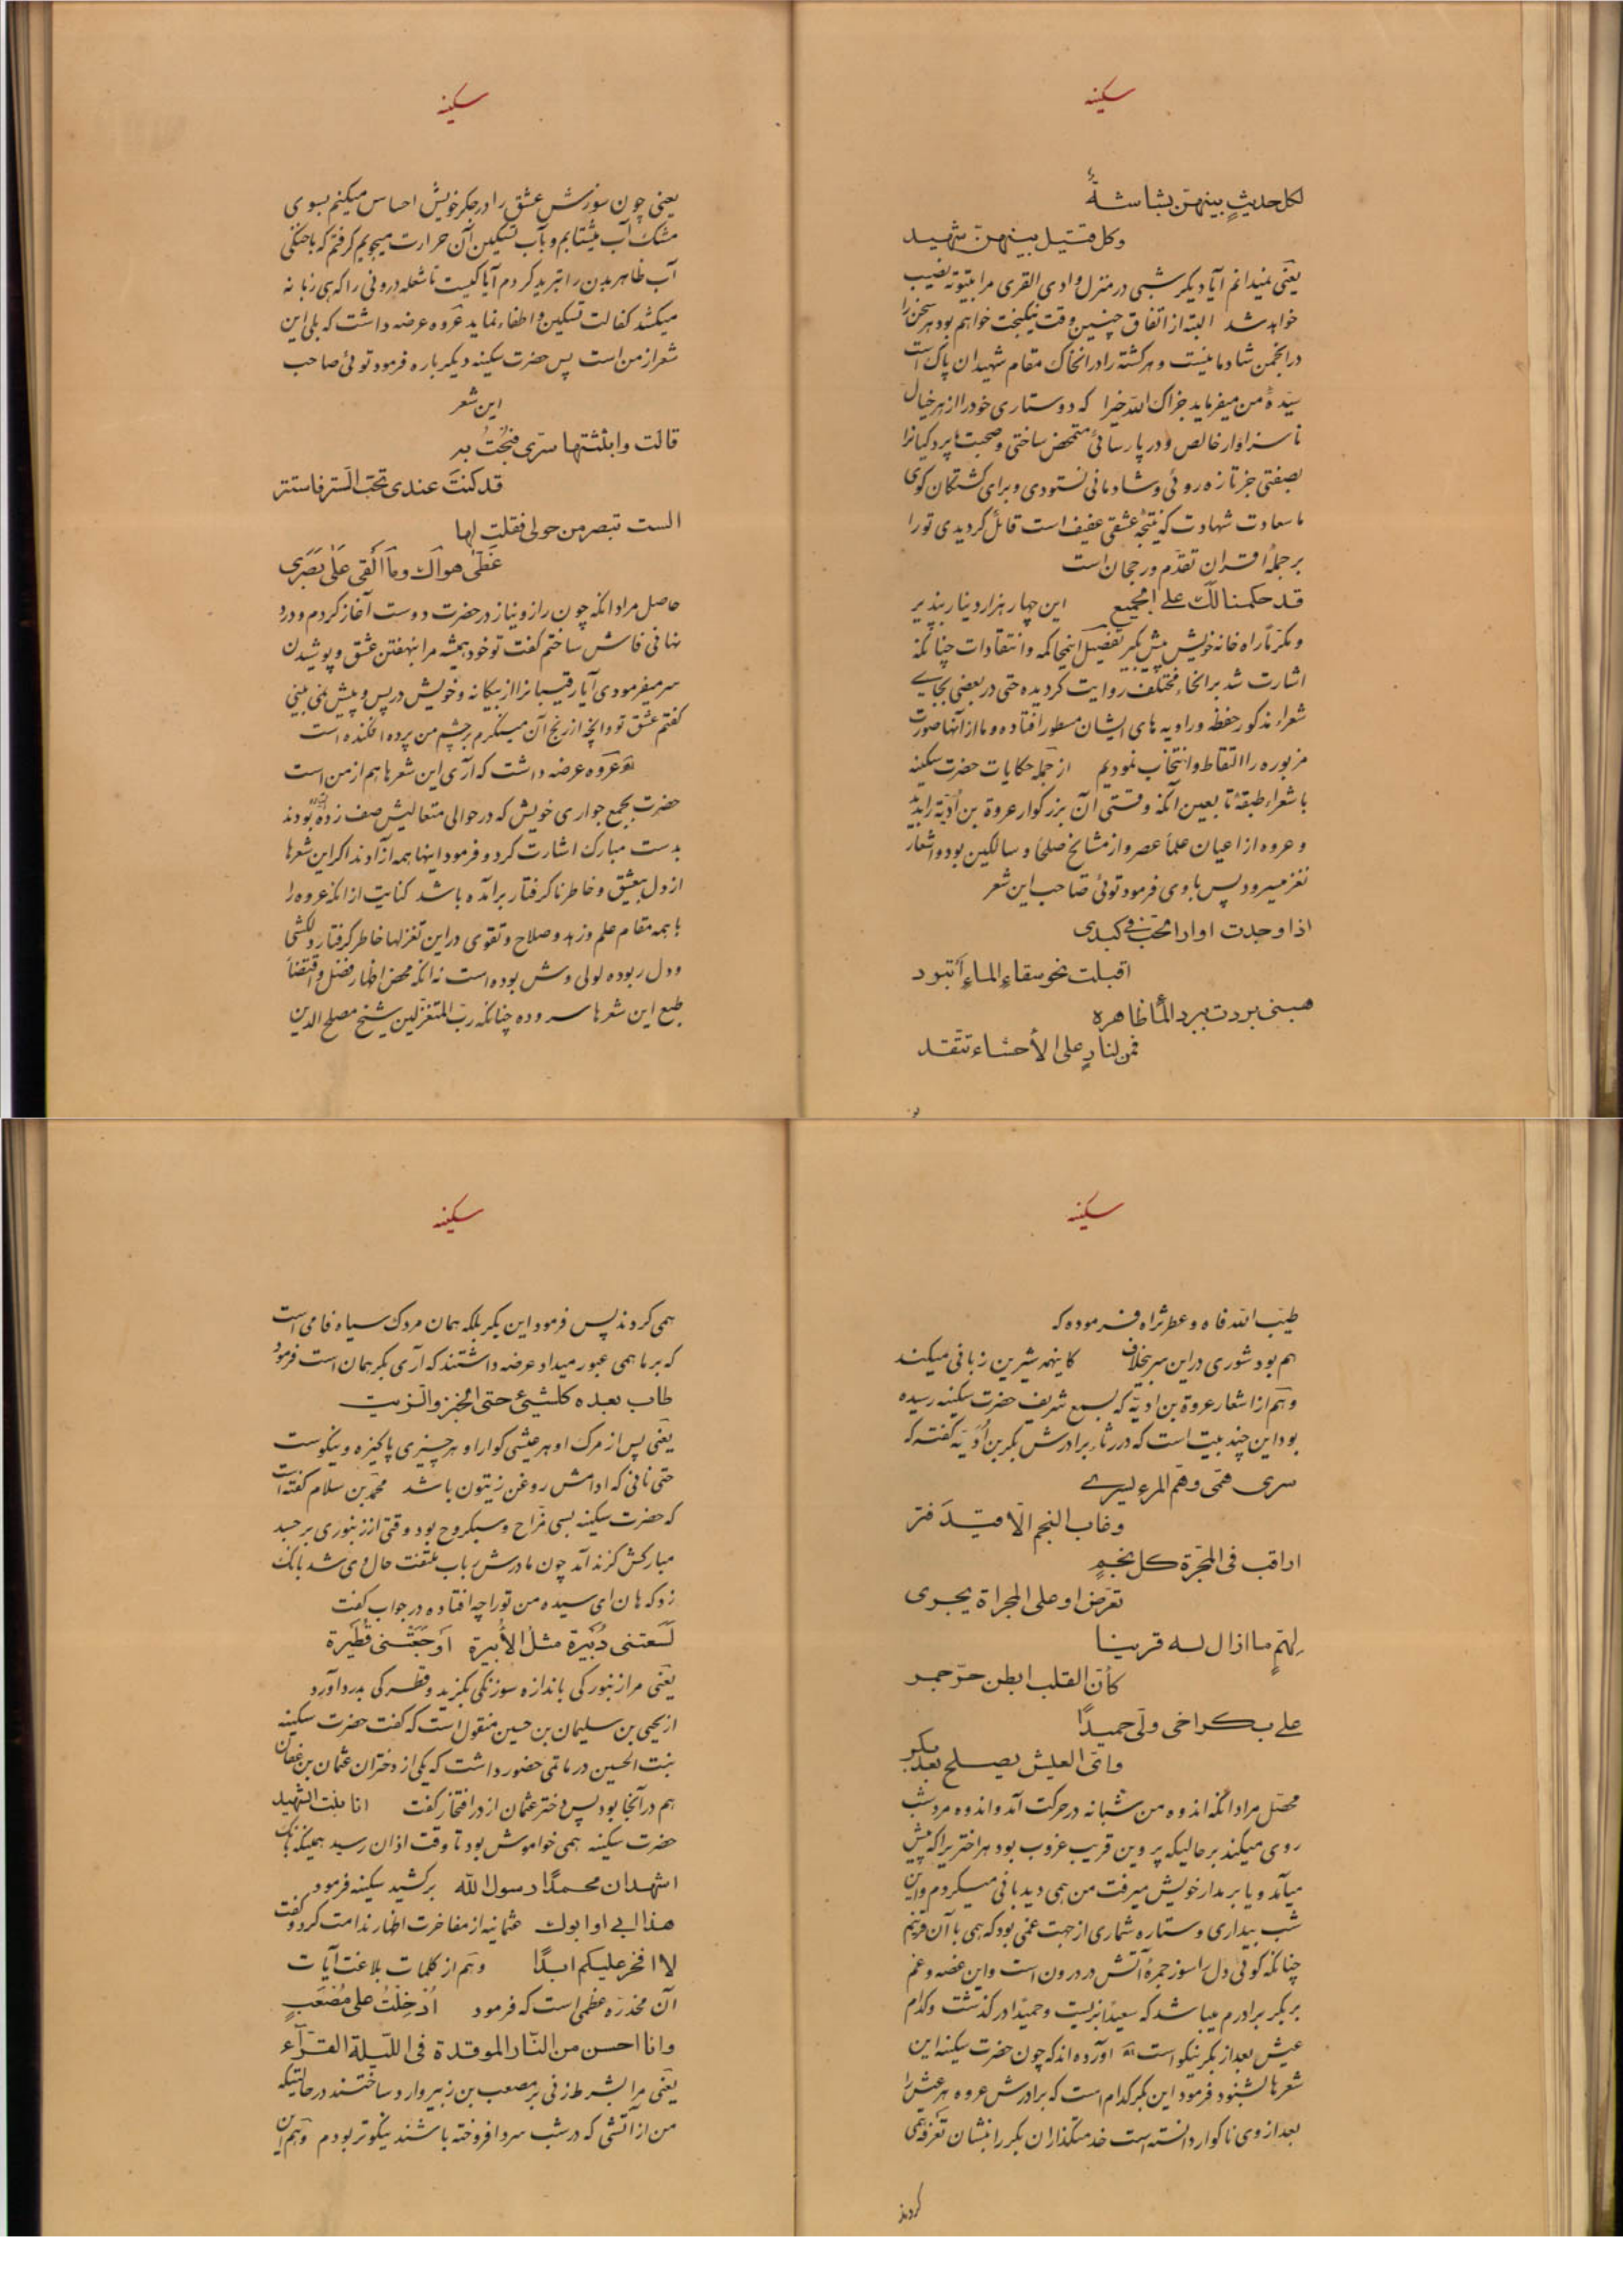 سکینه
لکل حدیثٍ بینهنّ بشاشةٌ
وکل قتیل بینهنّ شهید
یعنی نمیدانم آیا دیکر شبی در منزل وادی القری مرا بیتوته نصیب
خواهد شد البته از اتفاق چنین وقت نیکبخت خواهم بود هر سخن را
در انجمن شادمانیست و هر کشته را در انخاک مقام شهیدان پاک است
سیّدهٔ من میفرماید جزاک الله خیرا که دوستاری خود را از هر خیال
ناسزاوار خالص و در پارسائی متمحض ساختی و صحبت با پردکیانرا
بصفتی جز تازه روئی و شادمانی نستودی و برای کشتکان کوی
ما سعادت شهادت که نتیجهٔ عشقی عفیف است قائل کردیدی تو را
بر جملهٔ اقران تقدّم و رجحان است
قد حکمنا لک علی الجمیع این چهار هزار دینار بپذیر
و مکرّماً راه خانه خویش پیش بکیر تفصیل اینمحاکمه و انتقادات چنانکه
اشارت شد بر انحاء مختلف روایت کردیده حتی در بعضی بجای
شعراء مذکور حفظه و راویه های ایشان مسطور افتاده و ما از آنها صورت
مزبوره را التقاط و انتخاب نمودیم از جمله حکایات حضرت سکینه
با شعراء طبقهٔ تابعین آنکه وقتی آن بزرکوار عروة بن اُذَیّه را بدید
و عروه از اعیان علماء عصر و از مشایخ صلحا و سالکین بود و اشعار
نغز میسرود پس با وی فرمود توئی صاحب این شعر
اذا وجدت اوار الحب فی کبدی
اقبلت نحو سقاءِ الماءِ أتبرد
هبنی بردت ببرد المأ ظاهره
فمن لنارٍ علی الأحشاء تتّقد
سکینه
یعنی چون سوزش عشق را در جکر خویش احساس میکنم بسوی
مشک آب میشتابم و بآب تسکین آن حرارت میجویم کرفتم که با خنکی
آب ظاهر بدن را تبرید کردم آیا کیست تا شعله درونی را که هی زبانه
میکشد کفالت تسکین و اطفاء نماید عروه عرضه داشت که بلی این
شعر از من است پس حضرت سکینه دیکر باره فرمود توئی صاحب
این شعر
قالت وابثثتها سرّی فبُحْتُ به
قد کنتَ عندی تحت السّتر فاستتر
الست تبصر من حولی فقلت لها
غَطّی هواکِ وما اَلْقی عَلیٰ بَصَری
حاصل مراد انکه چون راز و نیاز در حضرت دوست آغاز کردم و درد
نهانی فاش ساختم کفت تو خود همیشه مرا بنهفتن عشق و پوشیدن
سر میفرمودی آیا رقیبانرا از بیکانه و خویش در پس و پیش نمی بینی
کفتم عشق تو و انچه از رنج آن مینکرم بر چشم من پرده افکنده است
عروه عرضه داشت که آری این شعرها هم از من است
حضرت بجمع جواری خویش که در حوالی متعالیش صف زده بودند
بدست مبارک اشارت کرد و فرمود اینها همه آزادند اکر این شعرها
از دل بیعشق و خاطر ناکرفتار برآمده باشد کنایت از انکه عروه را
با همه مقام علم و زهد و صلاح و تقوی در این تغزلها خاطر کرفتار دلکشی
و دل ربوده لولی وش بوده است نه انکه محض اظهار فضل و اقتضاء
طبع این شعرها سروده چنانکه ربّ المتغزّلین شیخ مصلح الدین
سکینه
طیّب الله فاه و عطر ثراه فرموده که
هم بود شوری در این سر بیخلاف کاینهمه شیرین زبانی میکند
و هم از اشعار عروة بن اذیّه که بسمع شریف حضرت سکینه رسیده
بود این چند بیت است که در رثاء برادرش بکر بن اُذَیّه کفته که
سری همّی وهمّ المرء یسری
وغاب النجم الّا قیدَ فتر
اراقب فی المجرّة کل نجمٍ
تعرّض او علی المجراة یجری
لِهَمٍّ ما ازال له قرینا
کأنّ القلب ابطن حرّ جمر
علی بکر اخی ولّی حمیدًا
وایّ العیش یصلح بعد بکر
محصّل مراد انکه اندوه من شبانه در حرکت آمد و اندوه مرد شب
روی میکند بر حالیکه پروین قریب غروب بود هر اختریرا که پیش
میآمد و یا بر مدار خویش میرفت من همی دیدبانی میکردم و این
شب بیداری و ستاره شماری از جهت غمی بود که همی با آن قرینم
چنانکه کوئی دل را سوز جمرهٔ آتش در درون است و این غصه و غم
بر بکر برادرم میباشد که سعیدًا بزیست و حمیدًا در کذشت و کدام
عیش بعد از بکر نیکو است آورده اند که چون حضرت سکینه این
شعرها بشنود فرمود این بکر کدام است که برادرش عروه هر عیش را
بعد از وی ناکوار دانسته است خدمتکذاران بکر را بنشان تعرفه همی
کردند
سکینه
همی کردند پس فرمود این بکر بلکه همان مردک سیاه فامی است
که بر ما همی عبور میداد عرضه داشتند که آری بکر همان است فرمود
طاب بعده کلشیئ حتی الخبز والزیت
یعنی پس از مرک او هر عیشی کوارا و هر چیزی پاکیزه و نیکوست
حتی نانی که ادامش روغن زیتون باشد محمّد بن سلام کفته است
که حضرت سکینه بسی مزّاح و سبکروح بود وقتی از زنبوری بر جسد
مبارکش کزند آمد چون مادرش رباب ملتفت حال وی شد بانک
زد که هان ای سیده من تو را چه افتاده در جواب کفت
لَسَعتنی دُبَیرة مثل الأُبیرة اَوجَعَتْنی قُطَیرة
یعنی مرا زنبورکی باندازه سوزنکی بکزید و قطرکی بدرد آورد
از یحیی بن سلیمان بن حسین منقول است که کفت حضرت سکینه
بنت الحسین در ماتمی حضور داشت که یکی از دختران عثمان بن عفان
هم در آنجا بود پس دختر عثمان از در افتخار کفت انا بنت الشهید
حضرت سکینه همی خواموش بود تا وقت اذان رسید همینکه بانک
اشهد ان محمدًا رسول الله برکشید سکینه فرمود
هذا ابی او ابوک عثمانیه از مفاخرت اظهار ندامت کرد و کفت
لا افخر علیکم ابدًا و هم از کلمات بلاغت آیات
آن مخدّره عظمی است که فرمود اُدْخِلْتُ علی مُصْعَبٍ
وانا احسن من النّار الموقدة فی اللّیلة القرّآء
یعنی مرا بشرط زنی بر مصعب بن زبیر وارد ساختند در حالتیکه
من از آتشی که در شب سرد افروخته باشند نیکوتر بودم و هم این